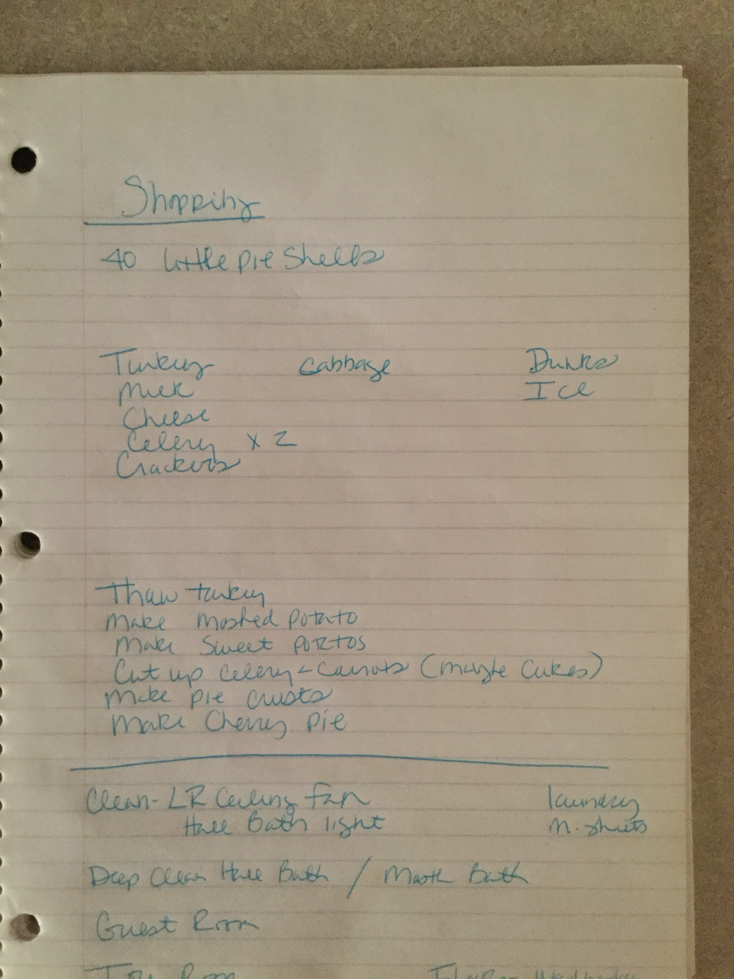 Shopping
40 Little Pie Shells
Turkey Cabbage Drinks
Milk Ice
Cheese
Celery x 2
Crackers
Thaw turkey
Make Mashed Potato
Make Sweet Potatos
Cut up Celery + Carrots (maybe Cukes)
Make Pie Crusts
Make Cherry Pie
Clean - LR Ceiling Fan laundry
Hall Bath light M. Sheets
Deep Clean Hall Bath / Mastr Bath
Guest Room
Toy Room